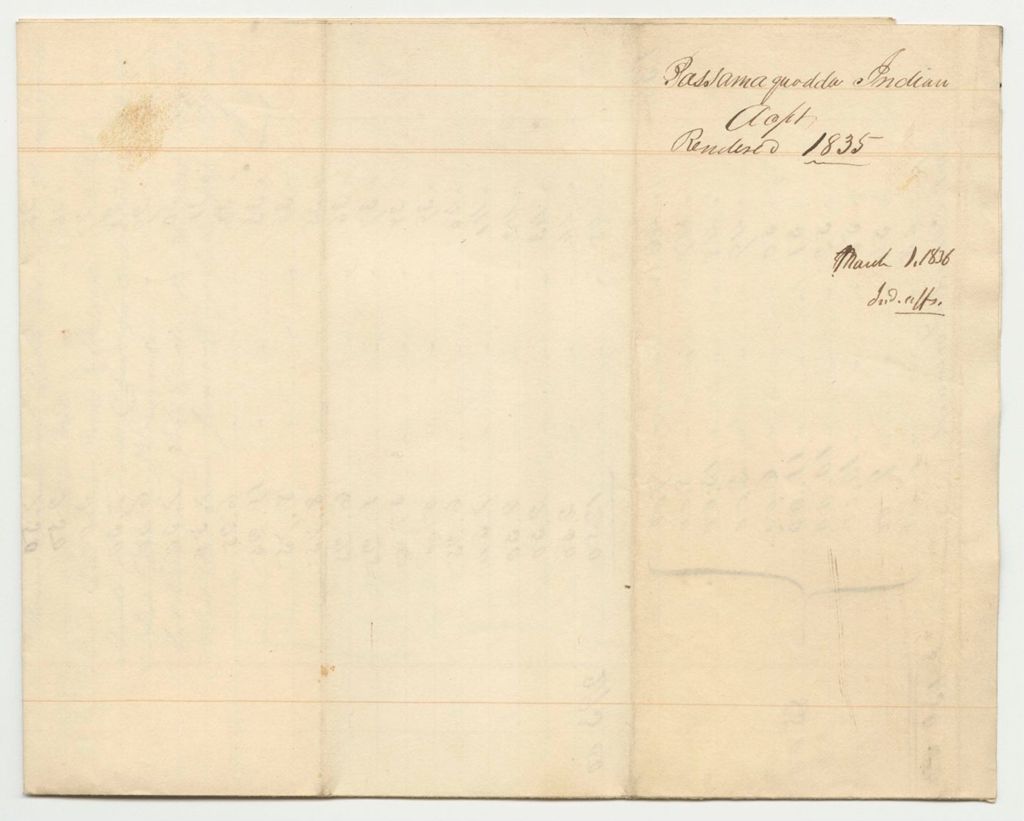 Passamaquodda Indian
Acpt
Rendered 1835
March 1, 1836
Ind. affs.